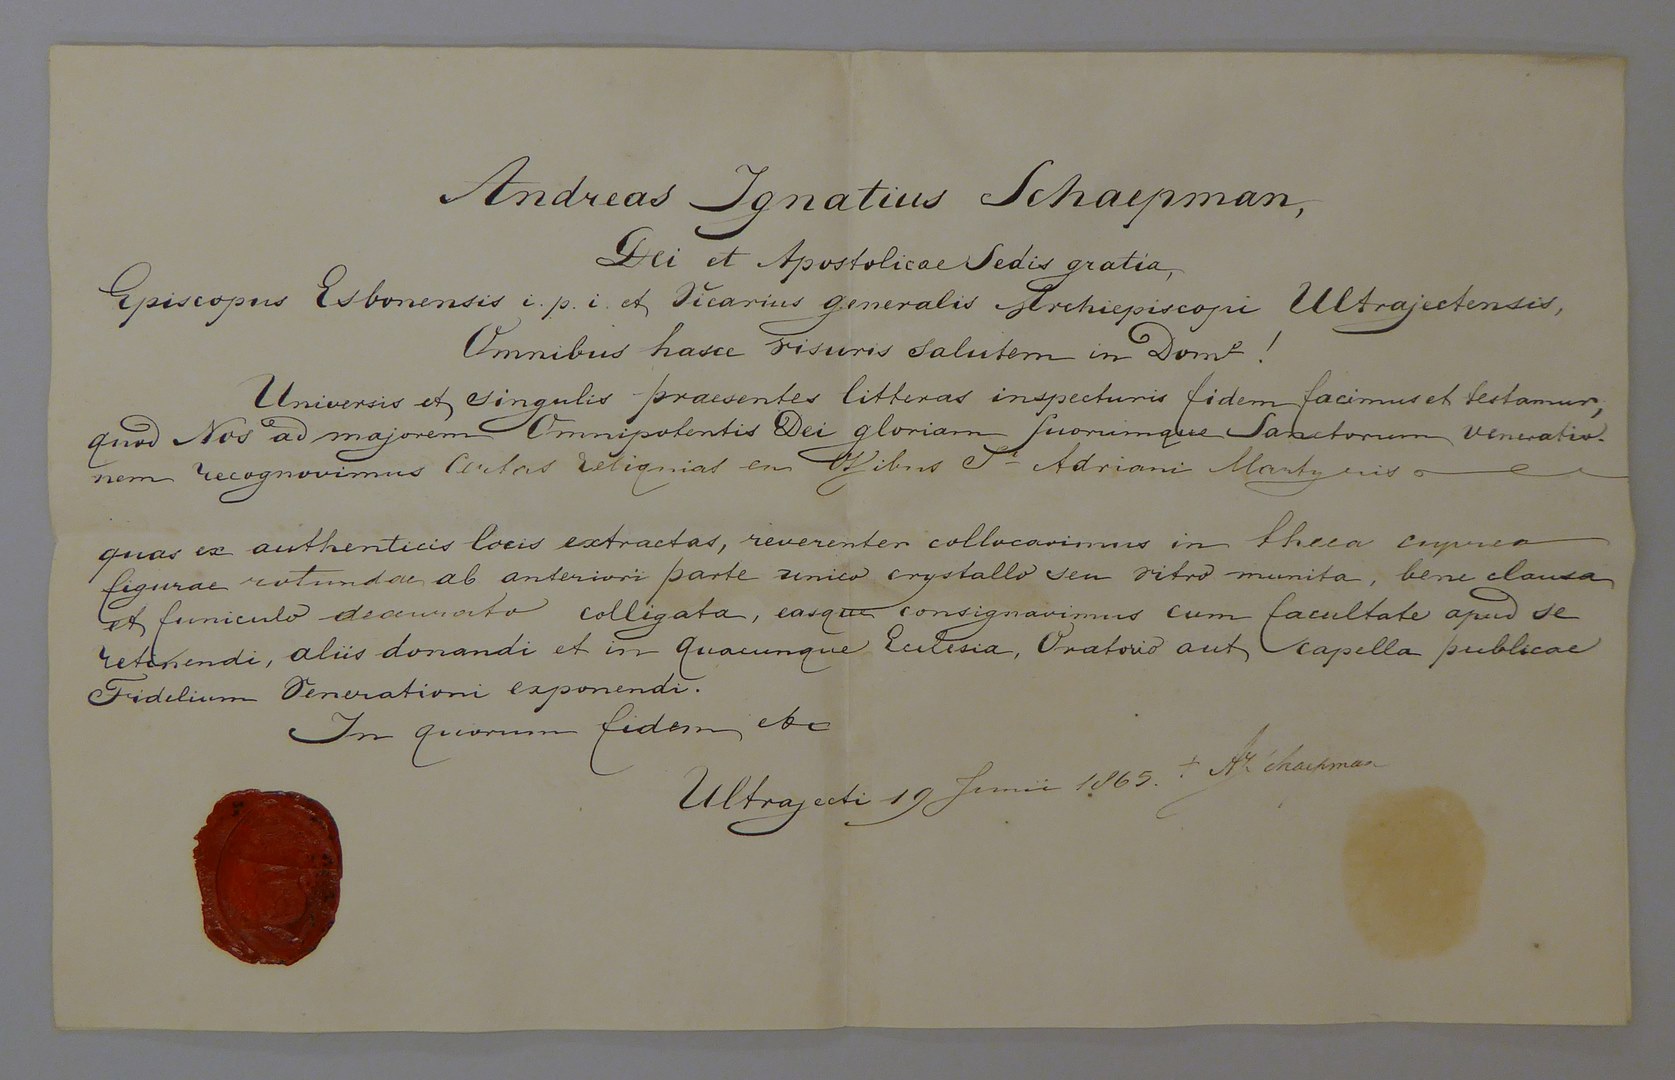 Andreas Ignatius Schaepman,
Dei et Apostolicae Sedis gratia,
Episcopus Esbonensis i. p. i. et Vicarius generalis Archiepiscopi Ultrajectensis,
Omnibus hasce visuris salutem in Domº!
Universis et singulis praesentes litteras inspecturis fidem facimus et testamur,
quod Nos ad majorem Omnipotentis Dei gloriam suorumque Sanctorum veneratio-
nem recognovimus certas reliquias ex Ossibus Sti Adriani Martyris
quas ex authenticis locis extractas, reverenter collocavimus in theca cuprea
figurae rotundae ab anteriori parte unico crystallo seu vitro munita, bene clausa
et funiculo deaurato colligata, easque consignavimus cum facultate apud se
retinendi, aliis donandi et in quacunque Ecclesia, Oratorio aut Capella publicae
Fidelium Venerationi exponendi.
In quorum fidem etc
Ultrajecti 19 Junii 1865. + A Schaepman